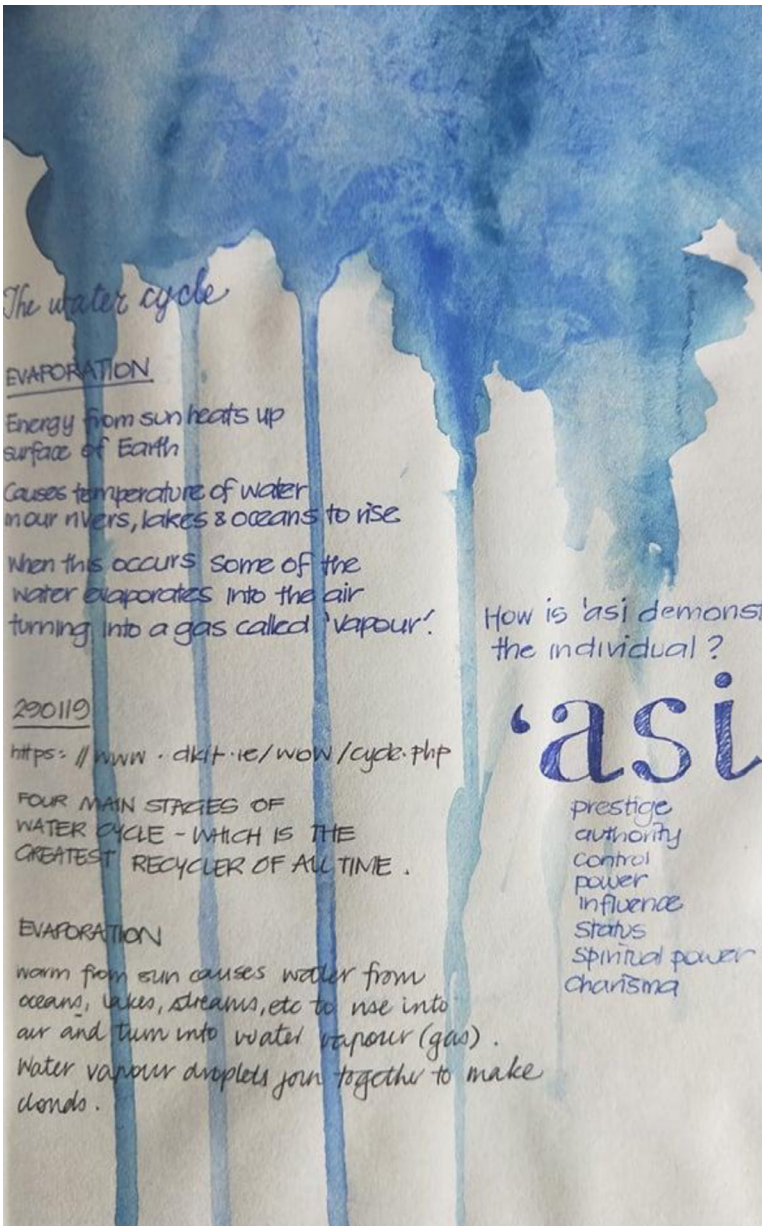 The water cycle
EVAPORATION
Energy from sun heats up
surface of Earth
Causes temperature of water
in our rivers, lakes & oceans to rise
When this occurs some of the
water evaporates into the air
turning into a gas called 'vapour'.
290119
https://www.dkit.ie/wow/cycle.php
FOUR MAIN STAGES OF
WATER CYCLE - WHICH IS THE
GREATEST RECYCLER OF ALL TIME.
EVAPORATION
warm from sun causes water from
oceans, lakes, streams, etc to rise into
air and turn into water vapour (gas).
Water vapour droplets join together to make
clouds.
How is 'asi demonst
the individual?
'asi
prestige
authority
control
power
influence
status
spiritual power
charisma